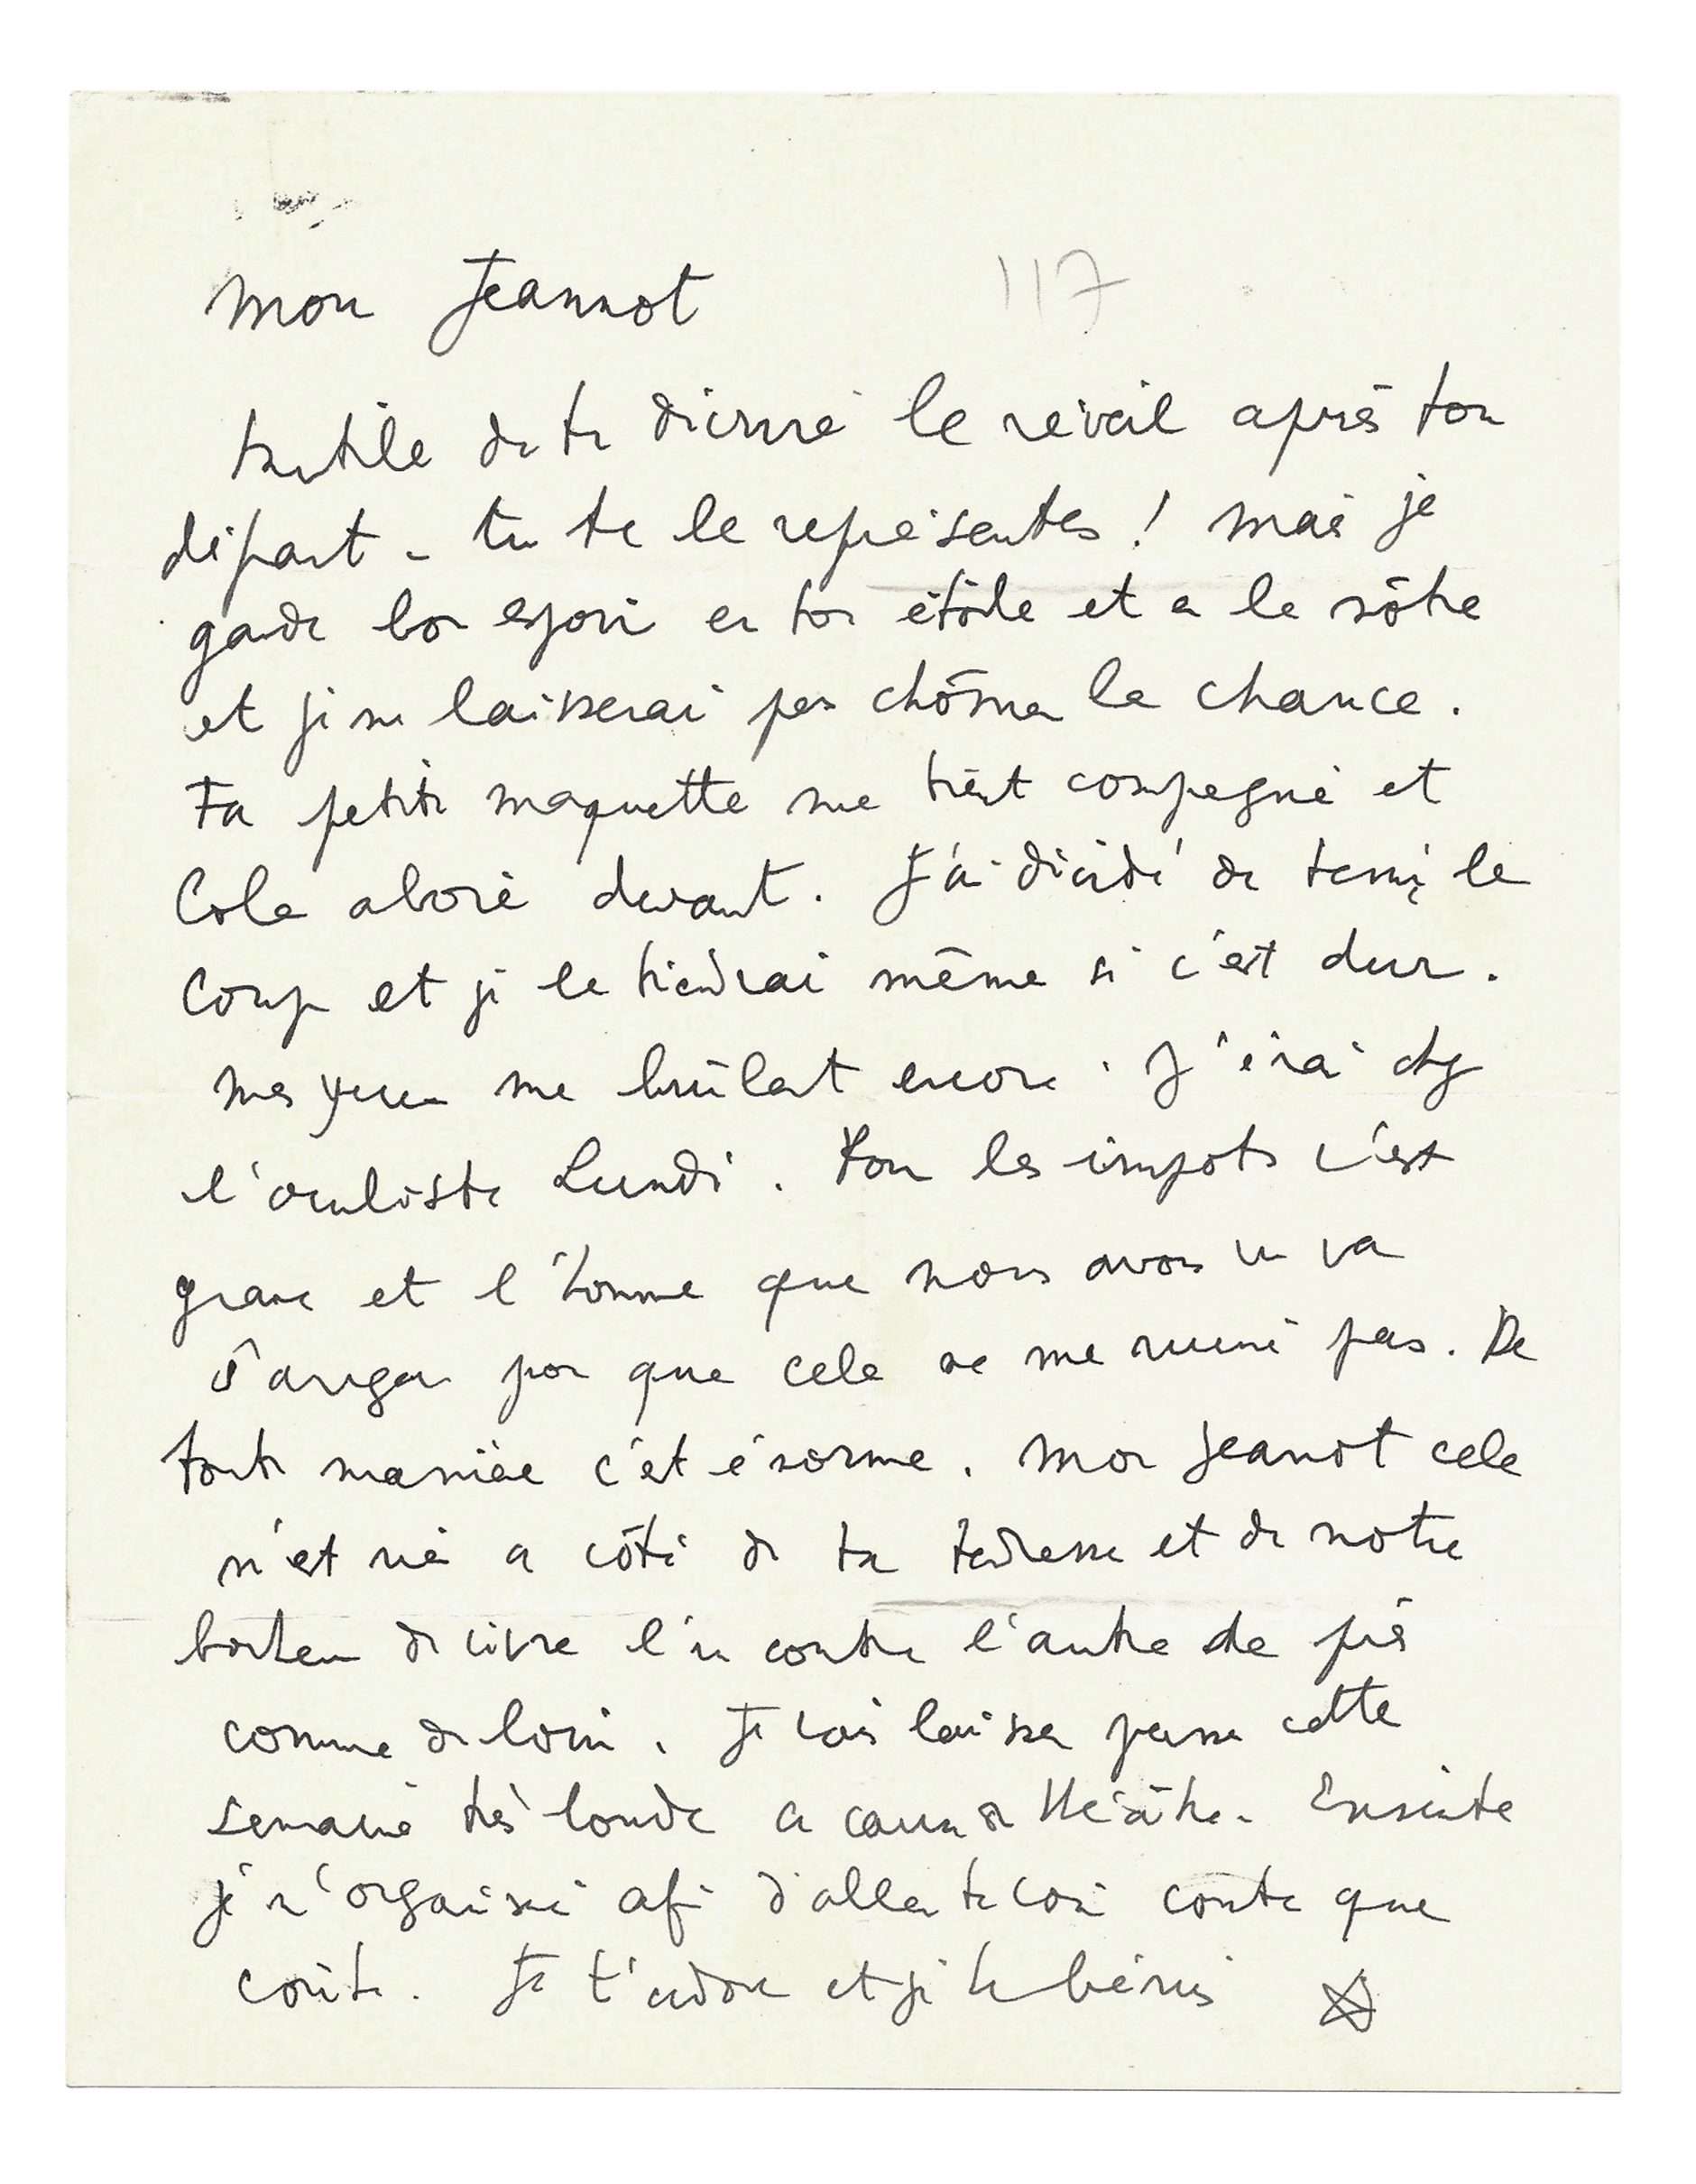 Mon Jeannot
117
Inutile de te décrire le réveil après ton
départ - tu te le représentes ! Mais je
garde bon espoir en ton étoile et en la nôtre
et je ne laisserai pas chômer la chance.
Ta petite maquette me tient compagnie et
Cola aboie devant. J'ai décidé de tenir le
coup et je le tiendrai même si c'est dur.
Mes yeux me brûlent encore. J'irai chez
l'oculiste Lundi. Pour les impots c'est
grave et l'homme que nous avons vu va
s'arranger pour que cela ne me ruine pas. De
toute manière c'est énorme. Mon Jeannot cela
n'est rien a côté de ta tendresse et de notre
bonheur de vivre l'un contre l'autre de près
comme de loin. Je vais laisser passer cette
semaine très lourde a cause du théâtre. Ensuite
je m'organise afin d'aller te voir coute que
coûte. Je t'adore et je te bénis